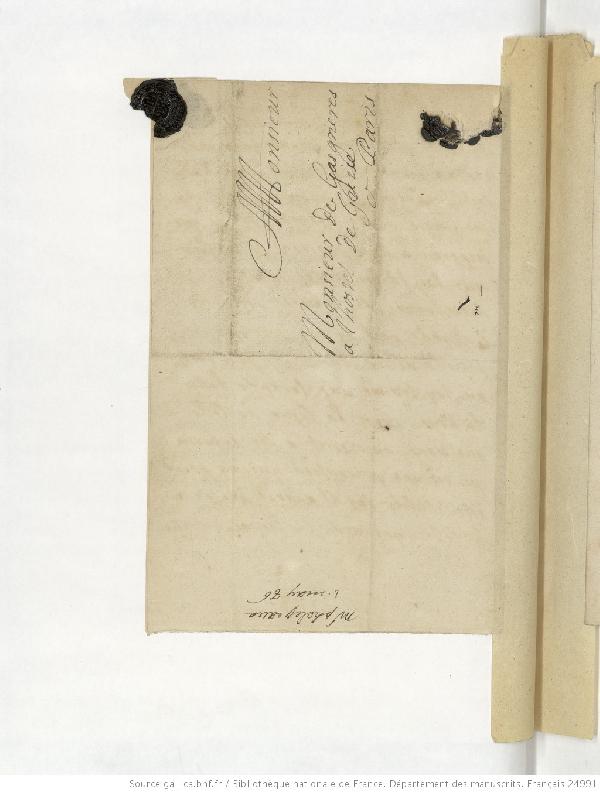 Monsieur
Monsieur de Gaignieres
a lhostel de Guise
a Paris
may 86
Source gallica.bnf.fr / Bibliothèque nationale de France. Département des manuscrits. Français 24991